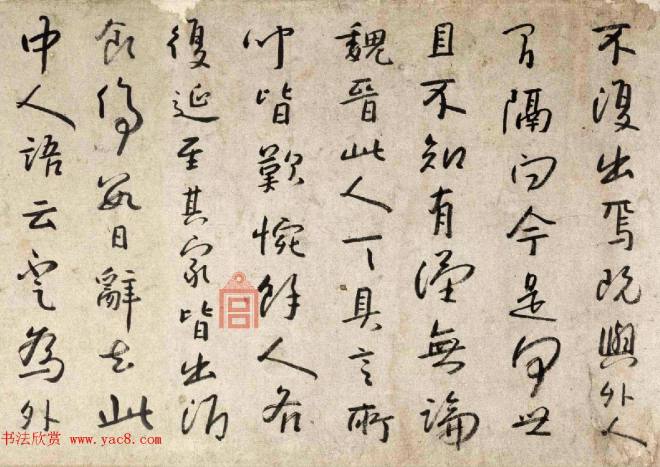 不復出焉既與外人
間隔問今是何世
且不知有漢無論
魏晉此人一一具言所
聞皆歎惋餘人各
復延至其家皆出酒
食停數日辭去此
中人語云不足為外
书法欣赏 www.yac8.com